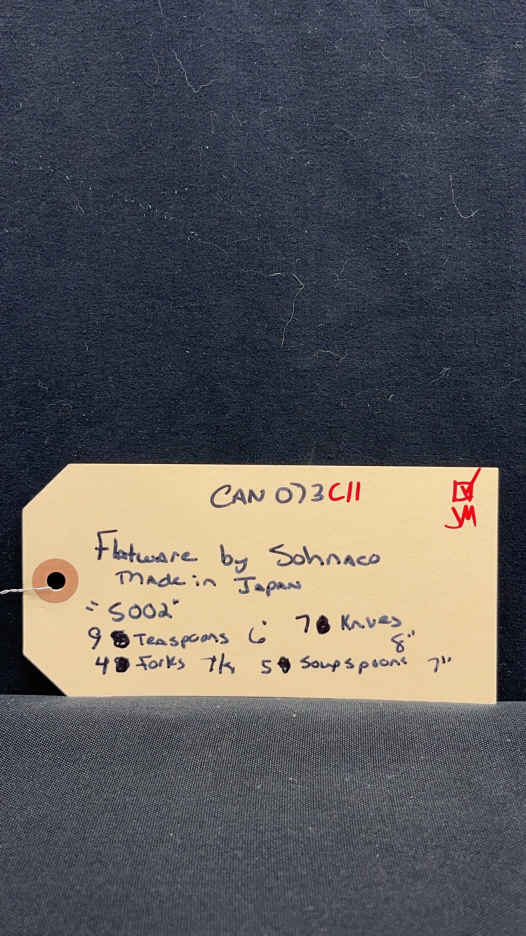 CAN 073 C11
JM
Flatware by Sohnaco
Made in Japan
"5002"
9 Teaspoons 6" 7 Knives 8"
4 Forks 5 Soupspoons 7"